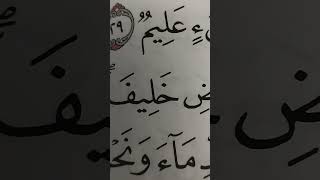 ءٍ عَلِيمٌ ٢٩
ضِ خَلِيفَ
دِّمَآءَ وَنَحْ